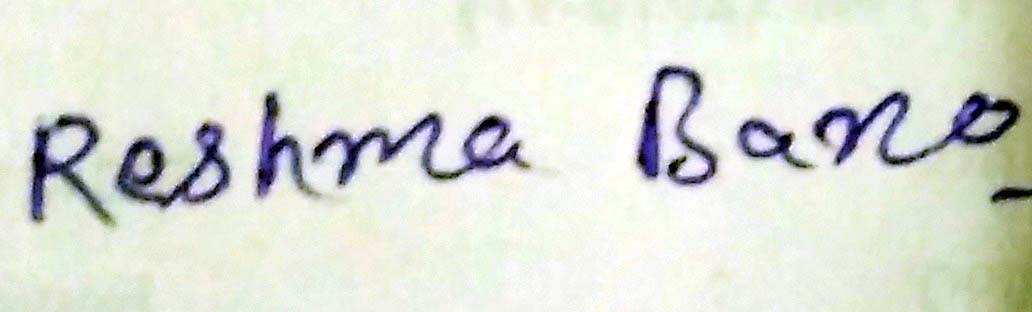 Reshma Bano